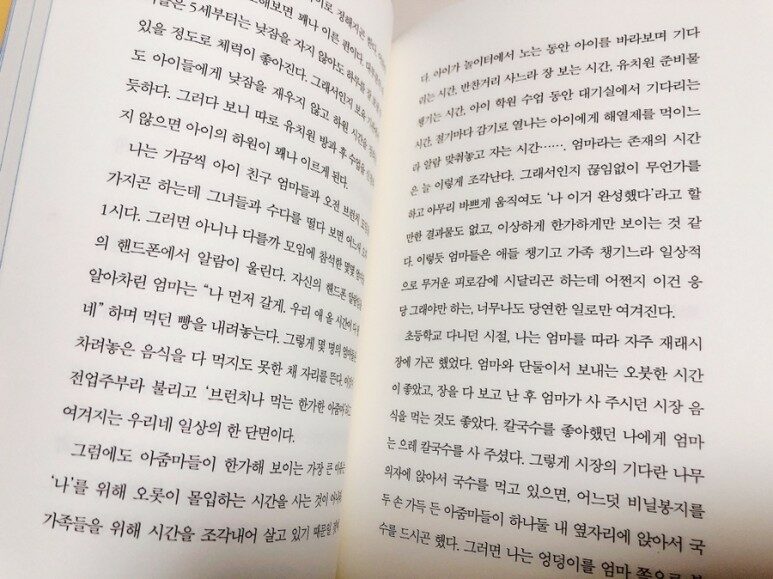 정해지곤 했다.
해보면 꽤나 이른
들은 5세부터는 낮잠을 자지 않아도 하루를
있을 정도로 체력이 좋아진다. 그래서인지
도 아이들에게 낮잠을 재우지 않고 하원 시간을
듯하다. 그러다 보니 따로 유치원 방과 후 수업을
지 않으면 아이의 하원이 꽤나 이르게 된다.
나는 가끔씩 아이 친구 엄마들과 오전 브런치
가지곤 하는데 그녀들과 수다를 떨다 보면 어느새
1시다. 그러면 아니나 다를까 모임에 참석한 몇몇
의 핸드폰에서 알람이 울린다. 자신의 핸드폰
알아차린 엄마는 “나 먼저 갈게. 우리 애 올 시간이
네” 하며 먹던 빵을 내려놓는다. 그렇게 몇 명의
차려놓은 음식을 다 먹지도 못한 채 자리를 뜬다.
전업주부라 불리고 ‘브런치나 먹는 한가한 아줌마’
여겨지는 우리네 일상의 한 단면이다.
그럼에도 아줌마들이 한가해 보이는 가장 큰
‘나’를 위해 오롯이 몰입하는 시간을 사는 것이
가족들을 위해 시간을 조각내어 살고 있기 때문일
다. 아이가 놀이터에서 노는 동안 아이를 바라보며 기다
리는 시간, 반찬거리 사느라 장 보는 시간, 유치원 준비물
챙기는 시간, 아이 학원 수업 동안 대기실에서 기다리는
시간, 절기마다 감기로 열나는 아이에게 해열제를 먹이느
라 알람 맞춰놓고 자는 시간……. 엄마라는 존재의 시간
은 늘 이렇게 조각난다. 그래서인지 끊임없이 무언가를
하고 아무리 바쁘게 움직여도 ‘나 이거 완성했다’라고 할
만한 결과물도 없고, 이상하게 한가하게만 보이는 것 같
다. 이렇듯 엄마들은 애들 챙기고 가족 챙기느라 일상적
으로 무거운 피로감에 시달리곤 하는데 어쩐지 이건 응
당 그래야만 하는, 너무나도 당연한 일로만 여겨진다.
초등학교 다니던 시절, 나는 엄마를 따라 자주 재래시
장에 가곤 했었다. 엄마와 단둘이서 보내는 오붓한 시간
이 좋았고, 장을 다 보고 난 후 엄마가 사 주시던 시장 음
식을 먹는 것도 좋았다. 칼국수를 좋아했던 나에게 엄마
는 으레 칼국수를 사 주셨다. 그렇게 시장의 기다란 나무
의자에 앉아서 국수를 먹고 있으면, 어느덧 비닐봉지를
두 손 가득 든 아줌마들이 하나둘 내 옆자리에 앉아서 국
수를 드시곤 했다. 그러면 나는 엉덩이를 엄마 쪽으로